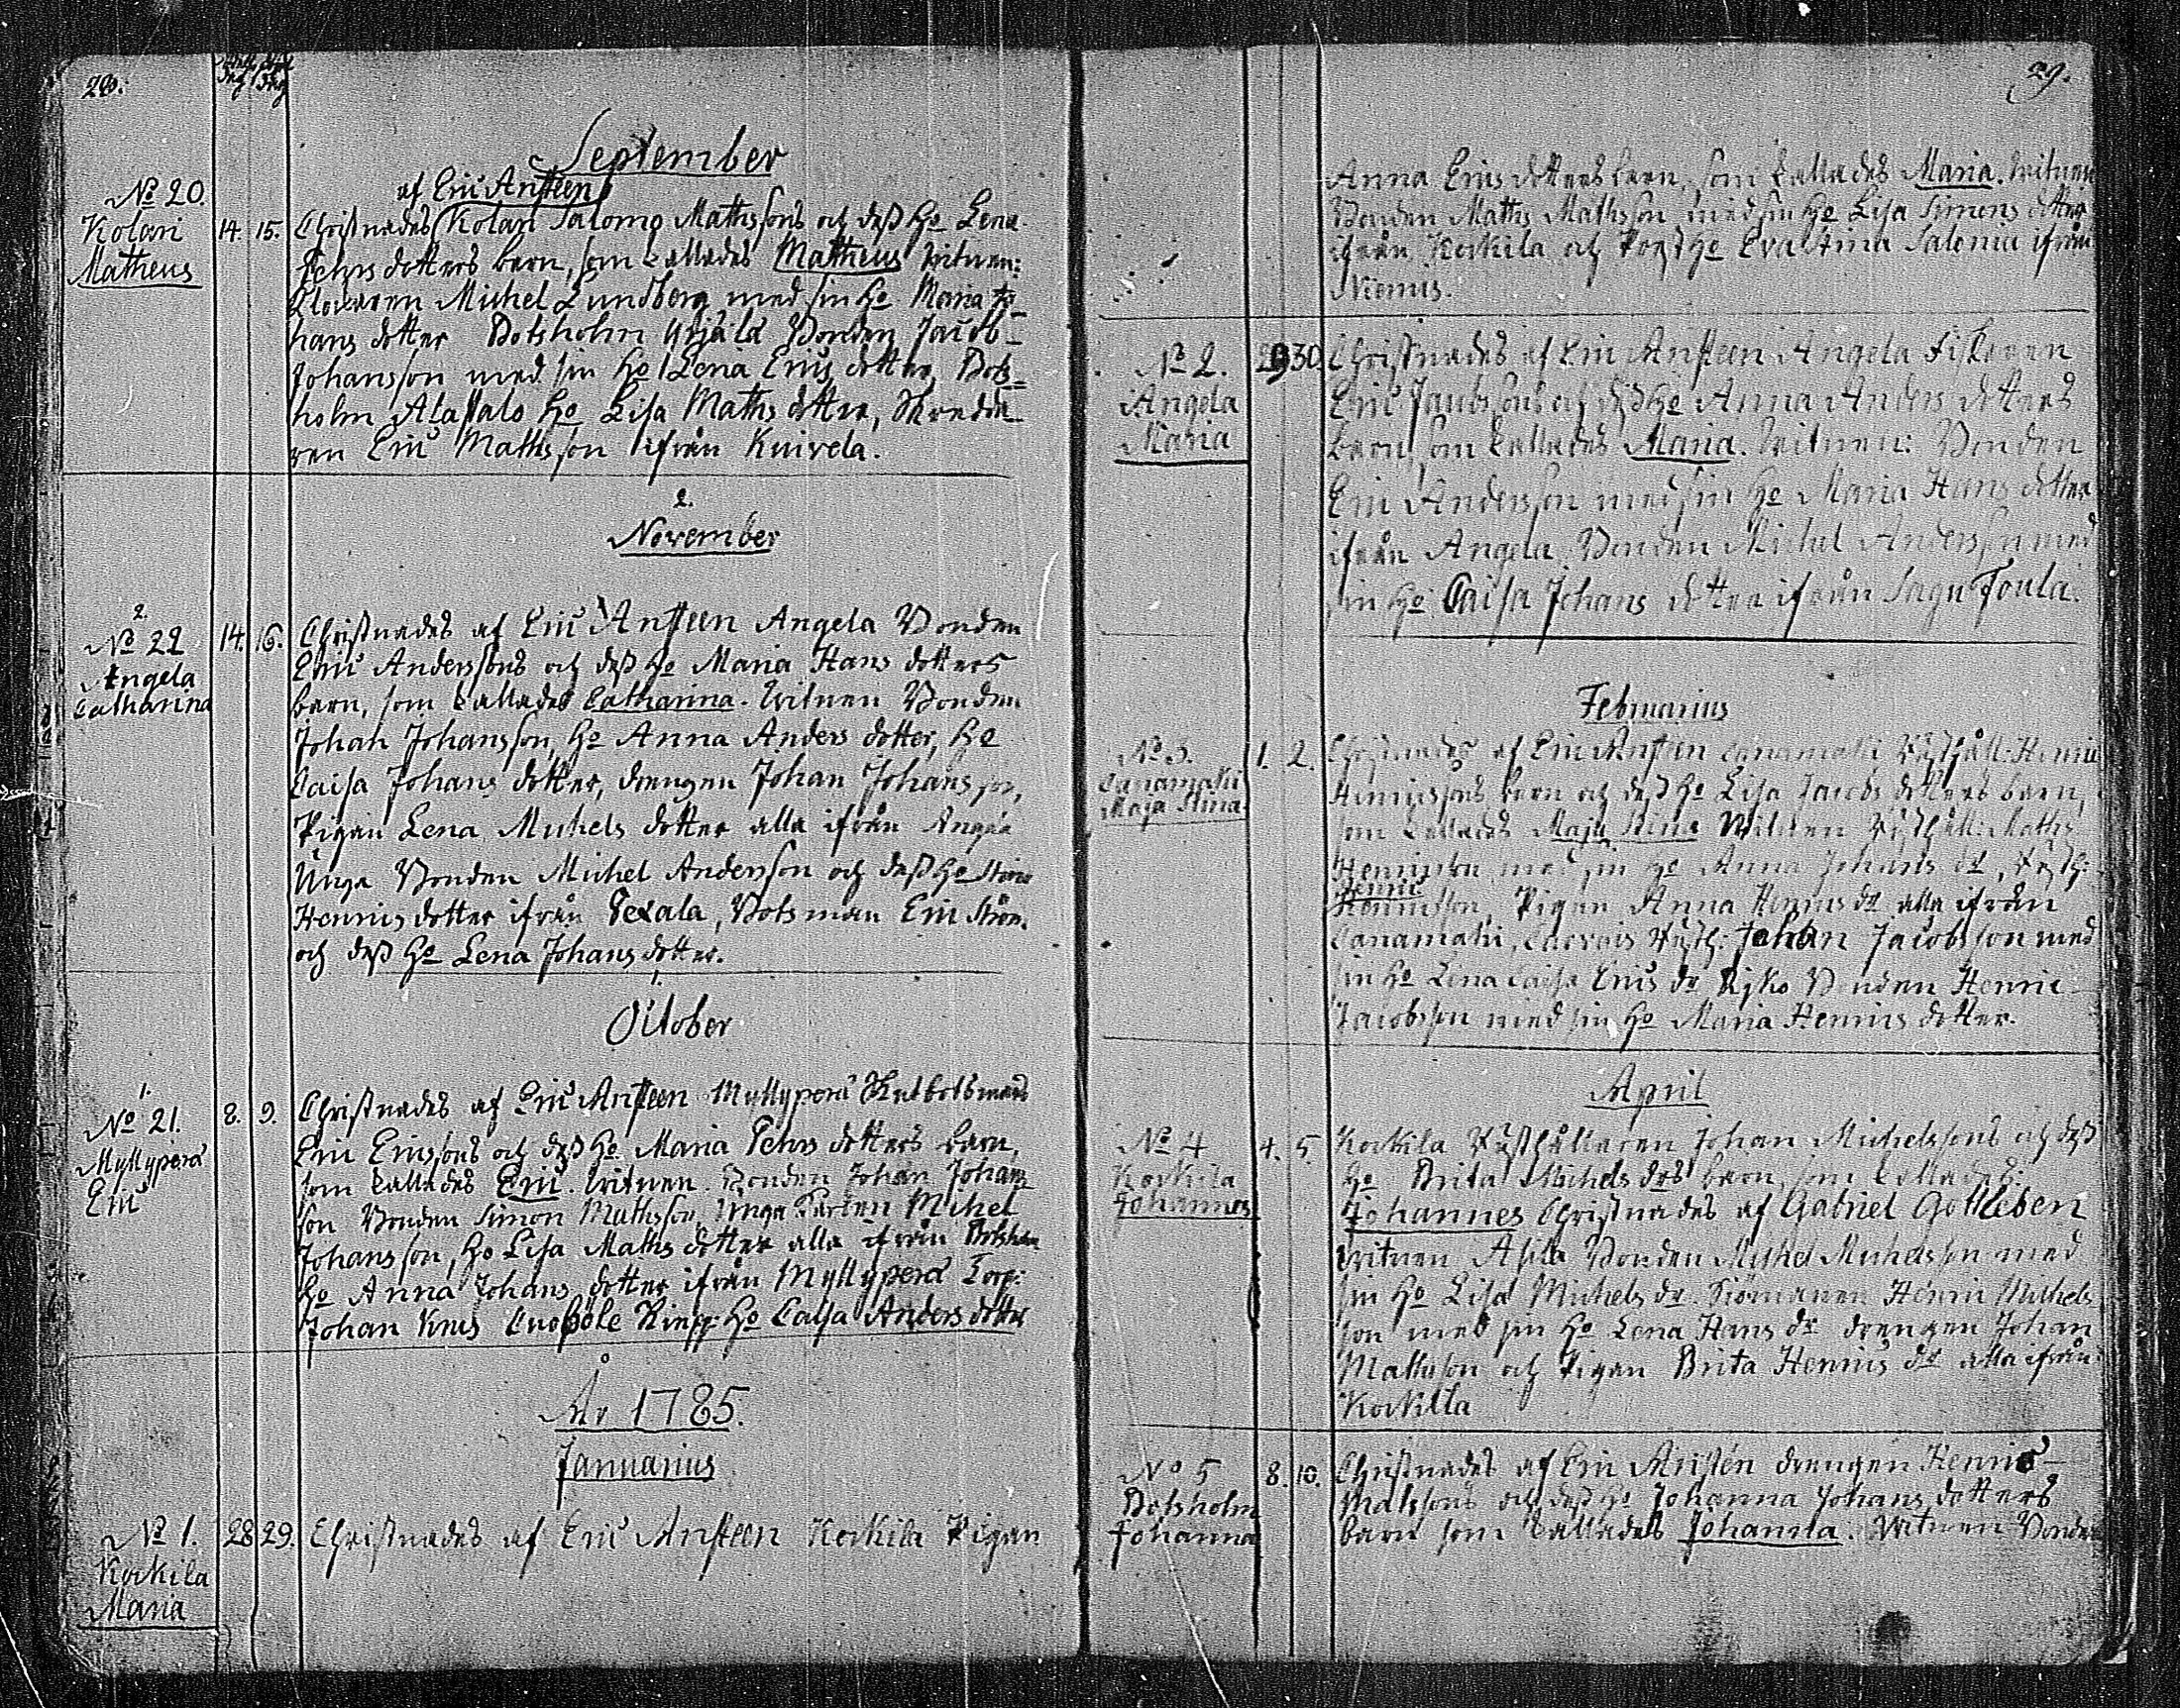 28.
September
No 20.
Kolari
Matheus
14. 15.
af Eric Ansteen
Christnades Kolari Salomo Mathssons och dess Ho Lena
Pehrs dotters barn, som kallades Matheus witnen:
Michel Lundberg med sin Ho Maria Jo-
hans dotter Botsholm Yrjälä Bonden Jacob
Johansson med sin Ho Lena Erics dotter, Bots=
holm Alastalo Ho Lisa Maths dotter, Skredda-
ren Eric Mathsson ifrån Knivela.
2.
November
2.
No 22
Angela
Catharina
14. 16.
Christnades af Eric Ansteen Angela Bonden
Eric Anderssons och dess Ho Maria Hans dotters
barn, som kallades Catharina. witnen Bonden
Johan Johansson, Ho Anna Anders dotter, Ho
Caisa Johans dotter, drengen Johan Johansson,
Pigan Lena Michels dotter alla ifrån Angela
Unga Bonden Michel Andersson och dess Ho Stina
Henrics dotter ifrån Texala, Botsman Eric Ström.
och dess Ho Lena Johans dotter.
1.
October
1.
No 21.
Myllyperä
Eric
8. 9.
Christnades af Eric Ansteen Myllyperä
Eric Ericssons och dess Ho Maria Pehrs dotters barn,
som kallades Eric. witnen Bonden Johan Johans-
son Bonden Simon Mathsson, Unga Michel
Johansson, Ho Lisa Maths dotter alla ifrån Botsholm
Ho Anna Johans dotter ifrån Myllyperä Torp:
Johan Ho Caisa Anders dotter
År 1785.
Januarius
No 1.
Korkila
Maria
28 29.
Christnades af Eric Ansteen Korkila Pigan
29.
Anna Erics dotters barn, som kallades Maria. witnen
Bonden Maths Mathsson med sin Ho Lisa Simons dotter
ifrån Korkila och Ho Eva Stina Salonia ifrån
Niemis.
No 2.
Angela
Maria
29 30.
Christnades af Eric Ansteen Angela Fiskaren
Eric Jacobssons och dess Ho Anna Anders dotters
barn, som kallades Maria. witnen: Bonden
Eric Andersson med sin Ho Maria Hans dotter
ifrån Angela, Bonden Michel Andersson med
sin Ho Caisa Johans dotter ifrån Sagu Toula.
Februarius
No 3.
Canamäki
Maja Stina
1. 2.
Christnades af Eric Ansteen Canamäki Rusthåll: Henric
Henricssons barn och dess Ho Lisa Jacobs dotters barn,
som kallades Maja Stina witnen Rusthåll: Maths
Henricson med sin Ho Anna Johans dr, Rusth:
Henric
Henricsson, Pigan Anna Henrics dr alla ifrån
Canamäki, Rusth: Johan Jacobsson med
sin Ho Lena Caisa Erics dr Rijko Bonden Henric
Jacobsson med sin Ho Maria Henrics dotter.
April
No 4
Korkila
Johannes
4. 5.
Korkila Rusthållaren Johan Michelssons och dess
Ho Brita Michels drs barn, som kallades
Johannes Christnades af Gabriel Gottleben
witnen Asila Bonden Michel Michelsson med
sin Ho Lisa Michels dr Henric Michels
son med sin Ho Lena Hans dr drengen Johan
Mathsson och Pigan Brita Henrics dr alla ifrån
Korkilla
No 5
Botsholm
Johanna
8. 10.
Christnades af Eric Anstén drengen Henric
Matssons och dess Ho Johanna Johans dotters
barn som kallades Johanna. Witnen Bonden